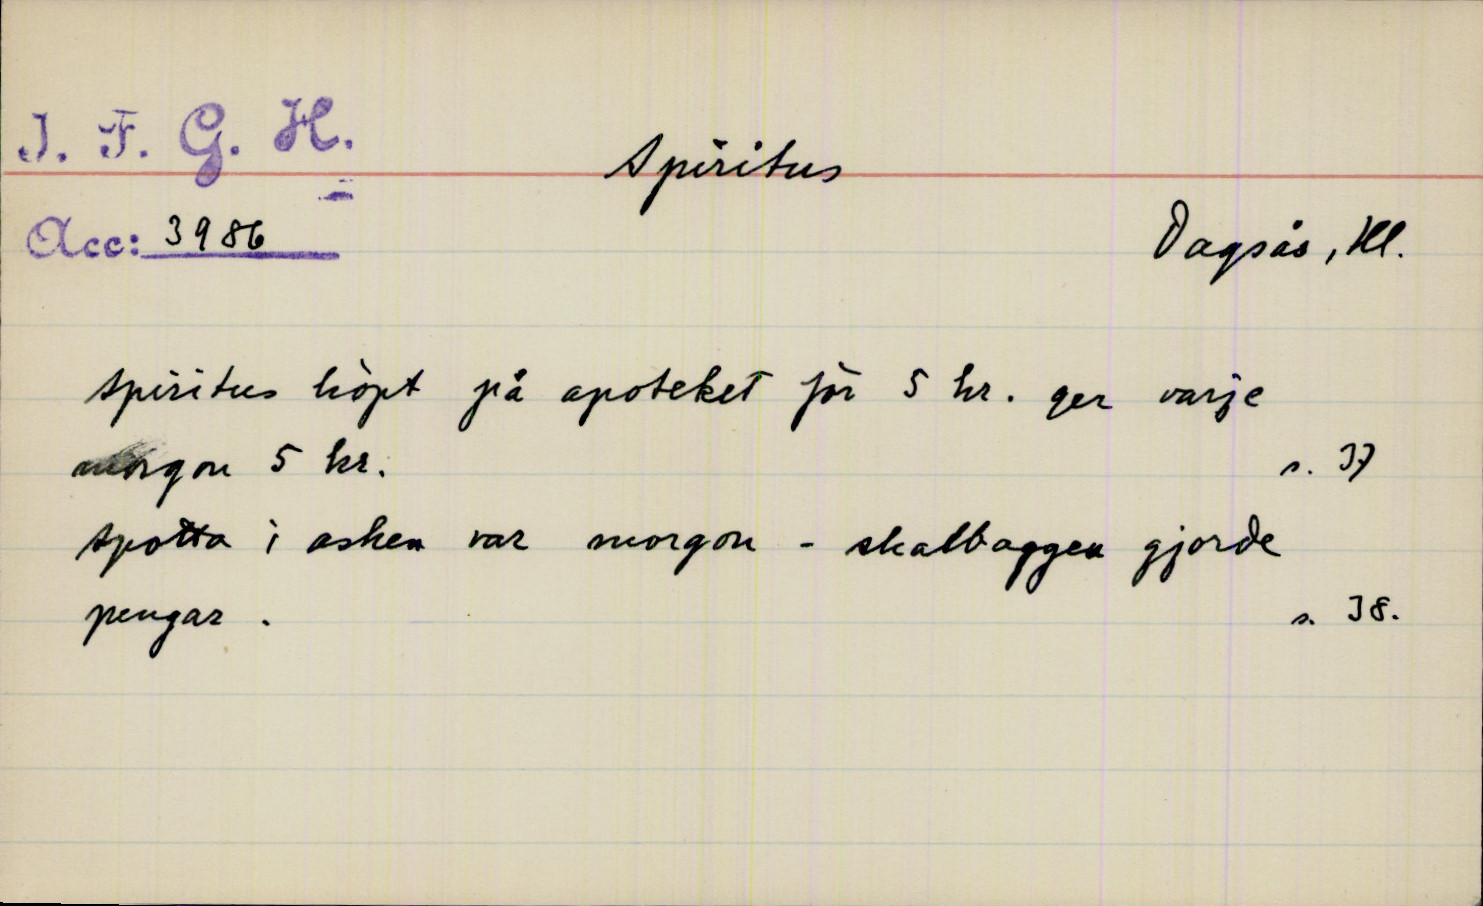 I. F. G. H.
Spiritus
Acc: 3986
Dagsås, Hl.
Spiritus köpt på apoteket för 5 kr. ger varje
morgon 5 kr.
s. 37
Spotta i asken var morgon - skalbaggen gjorde
pengar.
s. 38.